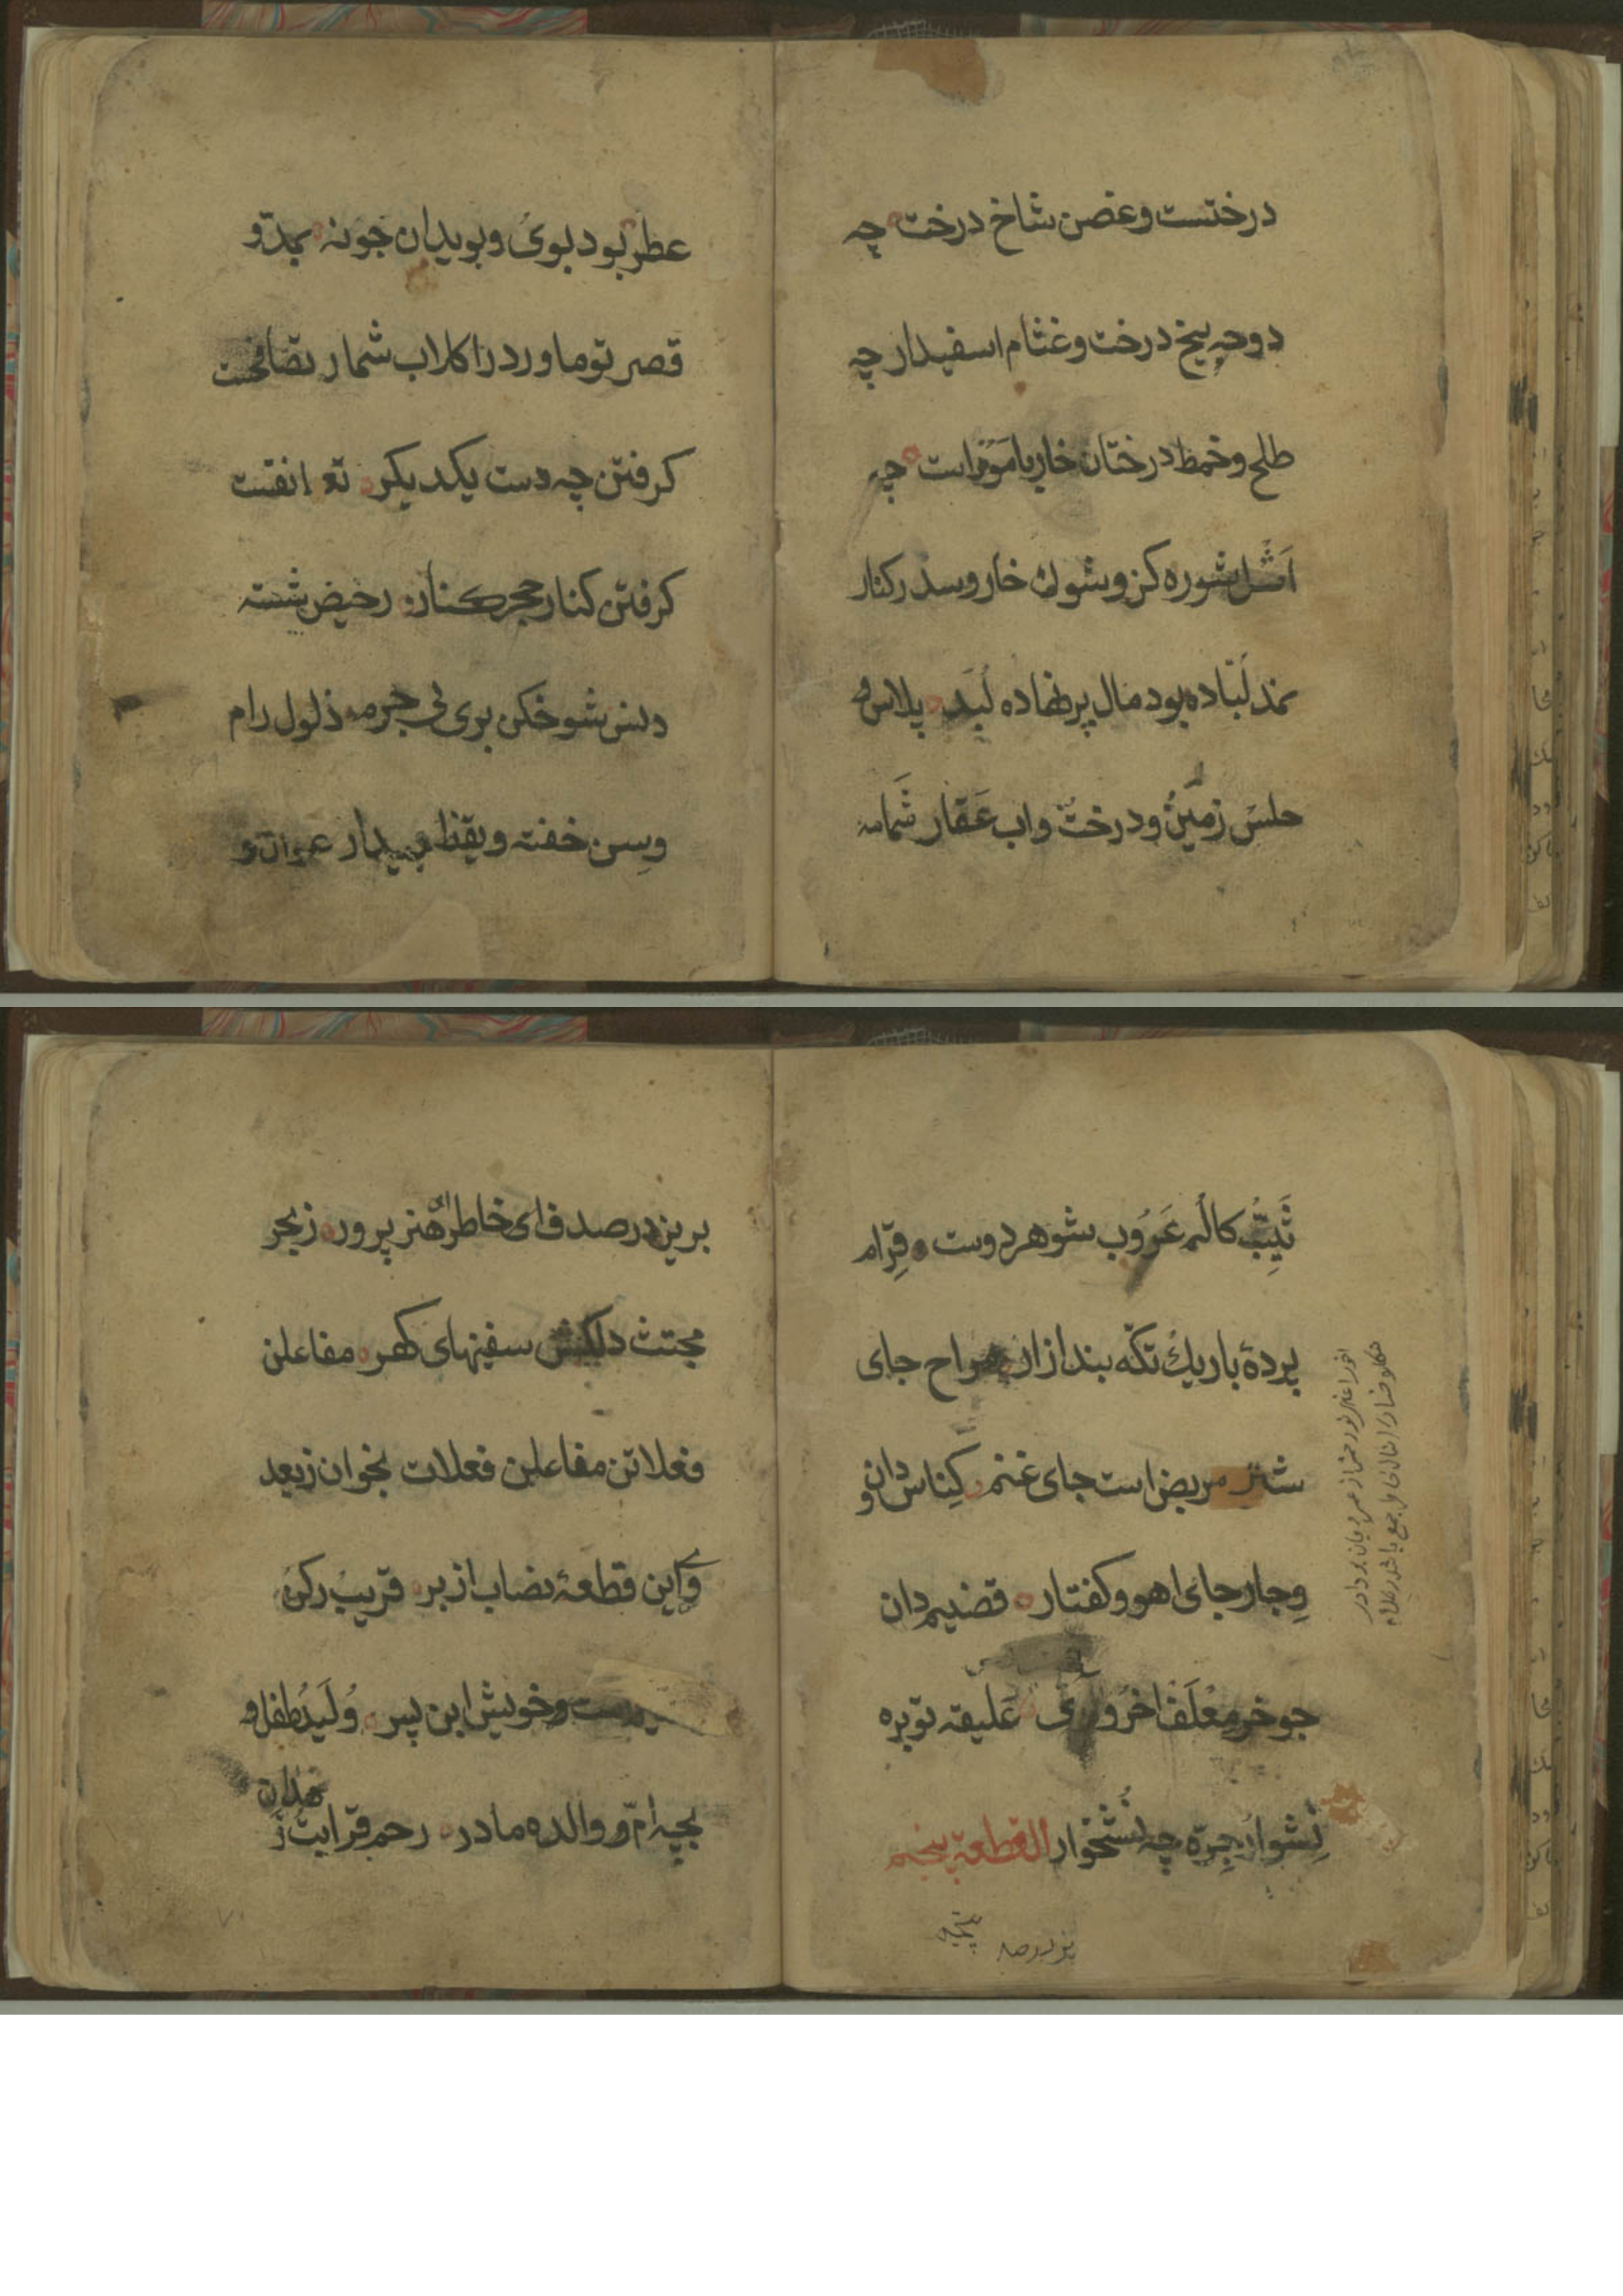 درختست وغصن شاخ درخت چه
دوحه بیخ درخت وغثام اسفیدار چه
طلح وخمط درختان خار یا موز است چه
اَثل شوره کز وشوك خار وسدر کنار
نمد لَبّاده بود مال پرنهاده لُبَد پلاس و
حلس زمین ودرخت واب عَقار شَمامه
عطر بود بوی وبویدان جونه بمد و
قصر تو ماورد را کلاب شمار تصافحست
کرفتن چه دست یکدیکر تعانقست
کرفتن کنار حجر کنار رحیض شسته
دنس شوخکن بری بی جرمه ذلول رام
وسِن خفته ویقظ بیدار عوان و
ثَیِّبُ کالم عَرُوب شوهر دوست قِرام
پردۀ باریك تکّه بند ازار مراح جای
شتر مربض است جای غنم کِناس دان و
وِجار جای اهو وکفتار قضیم دان
جو خر مِعْلَف اخر وری عَلیقه توبره
نِشوار جِرّه چه نُشخوار القطعة پنجم
بریز در صدف ای خاطر هنر پرور زبحر
مجتث دلکش سفینهای کهر مفاعلن
فعلاتن مفاعلن فعلات بخوان زبعد
وی این قطعۀ نصاب از بر قریب رکن
وخویش ابن پسر وُلَیدُ طفل و
بچه امّ و والده مادر رحم قرابت ز
هدان